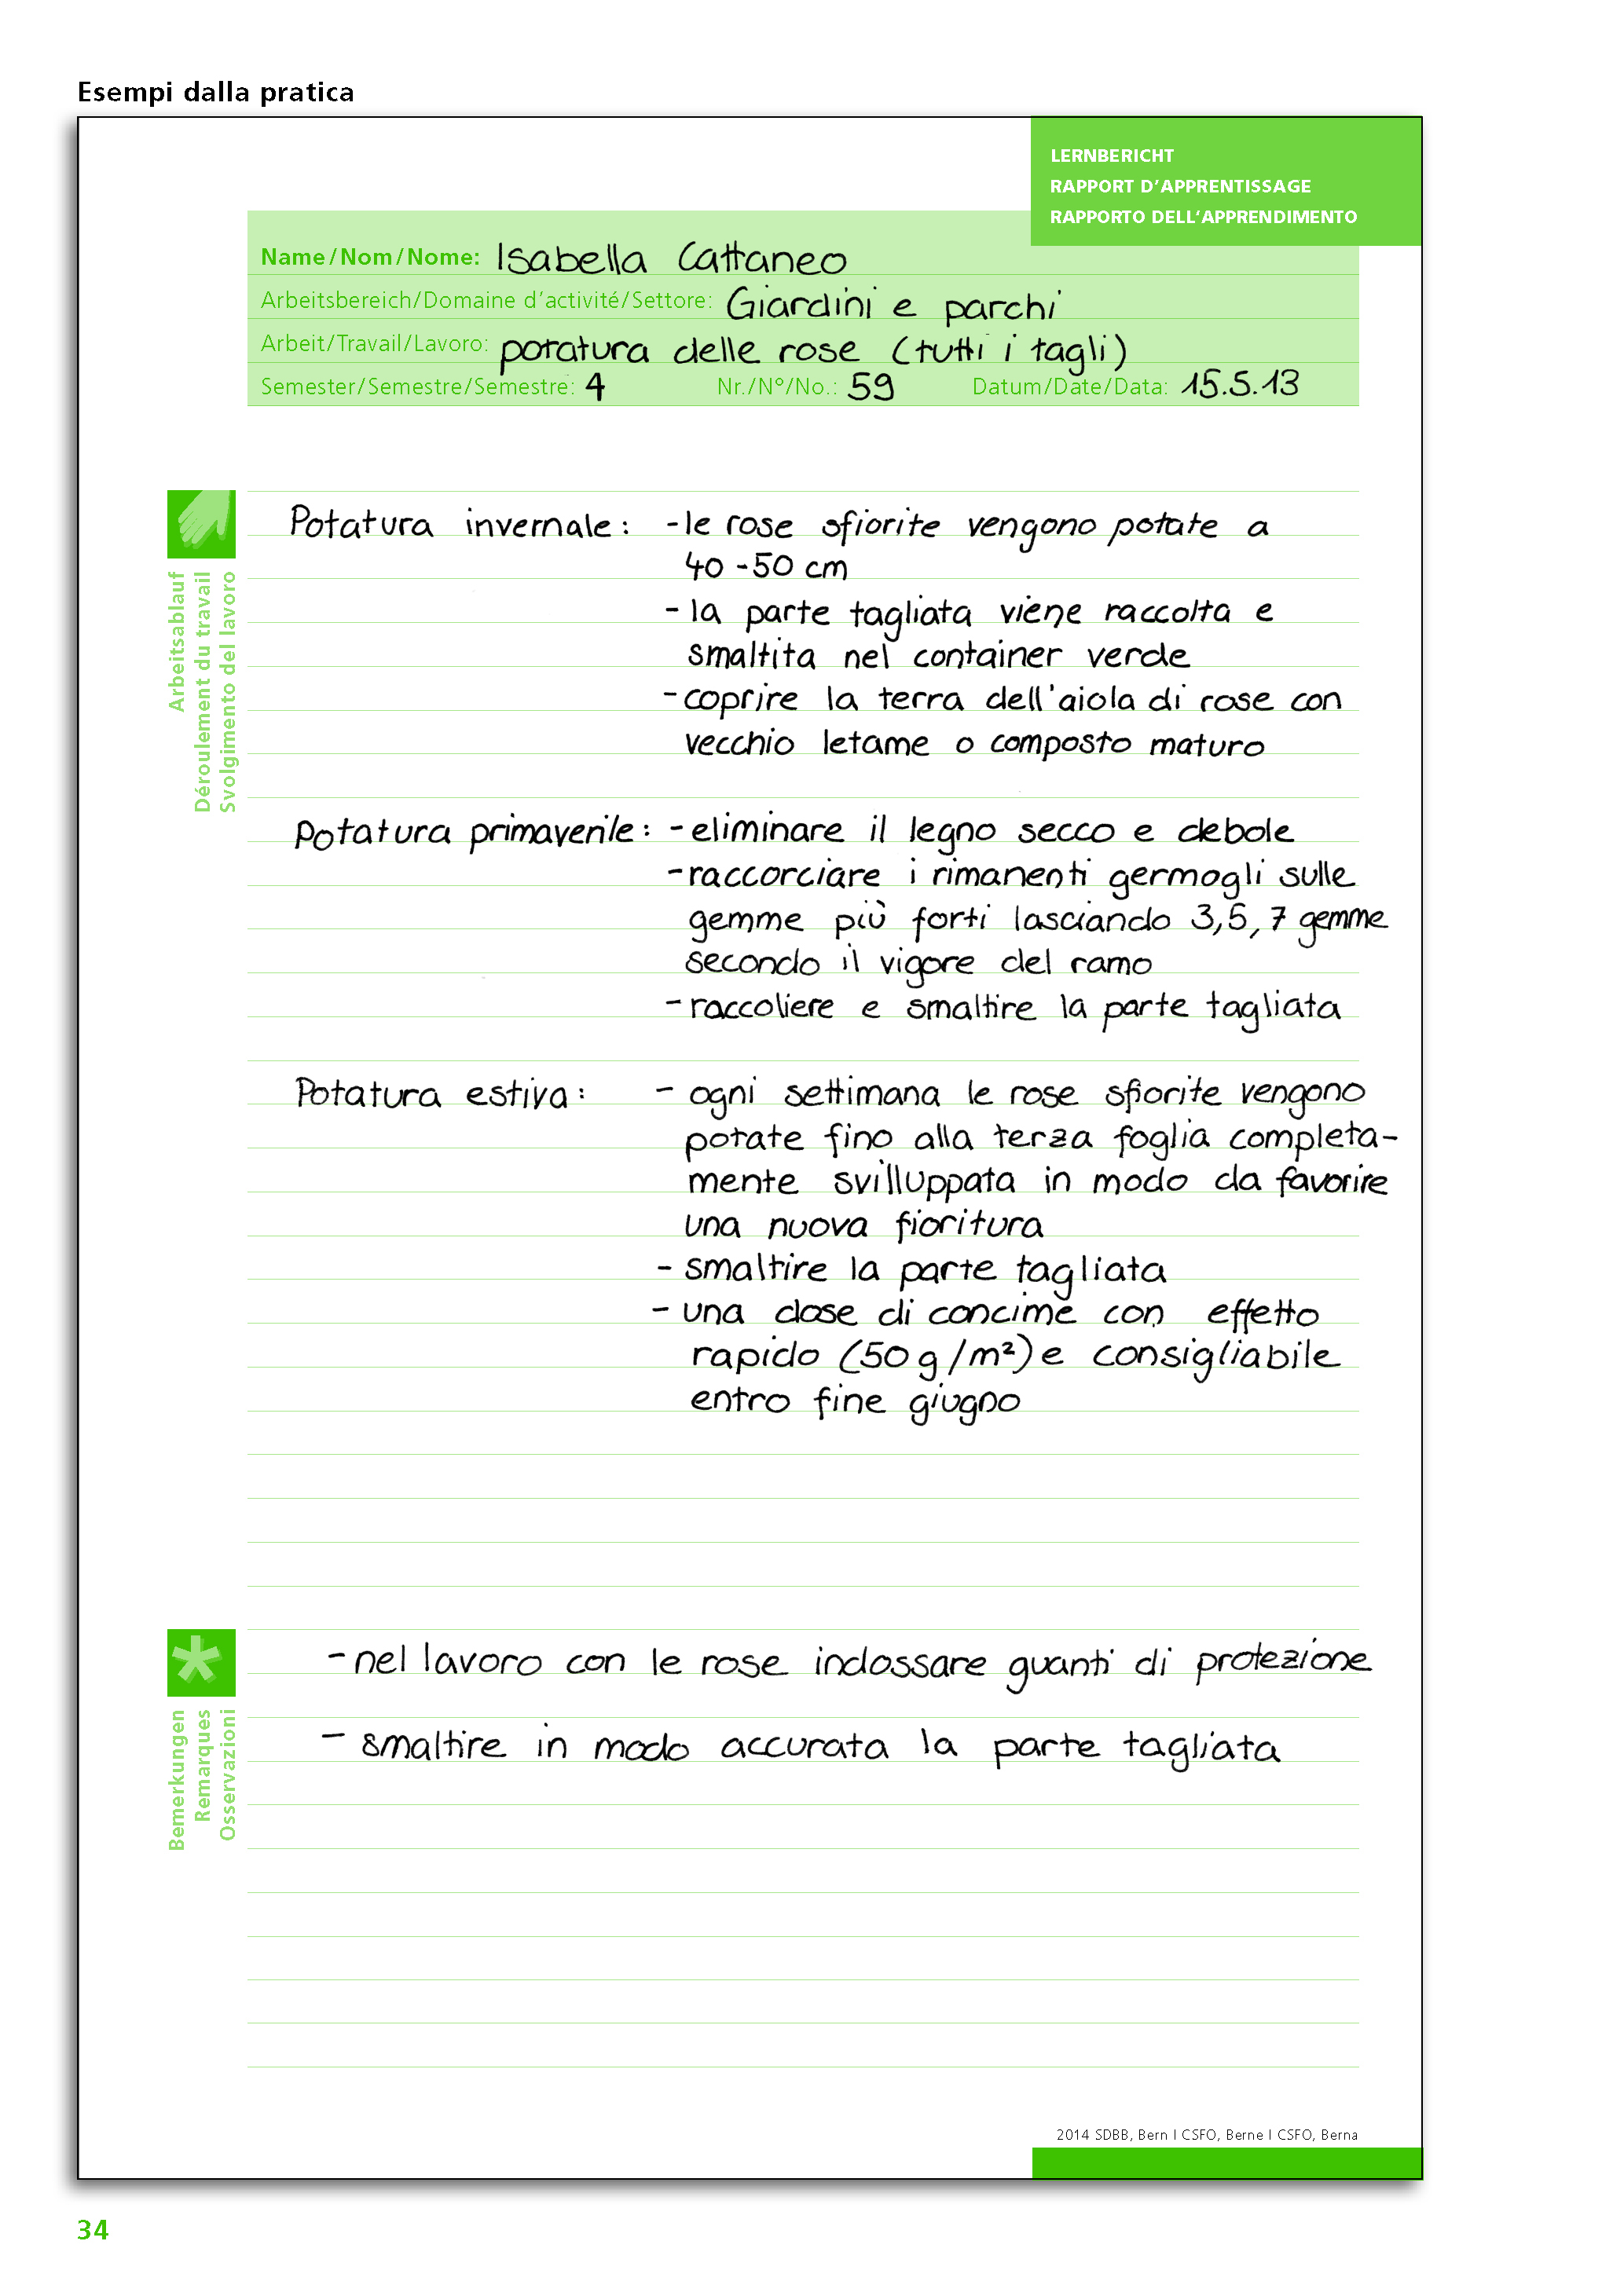 Esempi dalla pratica
LERNBERICHT
RAPPORT D'APPRENTISSAGE
RAPPORTO DELL'APPRENDIMENTO
Name/Nom/Nome: Isabella Cattaneo
Arbeitsbereich/Domaine d'activité/Settore: Giardini e parchi
Arbeit/Travail/Lavoro: potatura delle rose (tutti i tagli)
Semester/Semestre/Semestre: 4 Nr./N°/No.: 59 Datum/Date/Data: 15.5.13
Arbeitsablauf
Déroulement du travail
Svolgimento del lavoro
Potatura invernale: - le rose sfiorite vengono potate a
40-50 cm
- la parte tagliata viene raccolta e
smaltita nel container verde
- coprire la terra dell'aiola di rose con
vecchio letame o composto maturo
Potatura primaverile: - eliminare il legno secco e debole
- raccorciare i rimanenti germogli sulle
gemme più forti lasciando 3,5,7 gemme
secondo il vigore del ramo
- raccoliere e smaltire la parte tagliata
Potatura estiva: - ogni settimana le rose sfiorite vengono
potate fino alla terza foglia completa-
mente svilluppata in modo da favorire
una nuova fioritura
- smaltire la parte tagliata
- una dose di concime con effetto
rapido (50g/m²) e consigliabile
entro fine giugno
Bemerkungen
Remarques
Osservazioni
- nel lavoro con le rose indossare guanti di protezione
- smaltire in modo accurata la parte tagliata
2014 SDBB, Bern I CSFO, Berne I CSFO, Berna
34